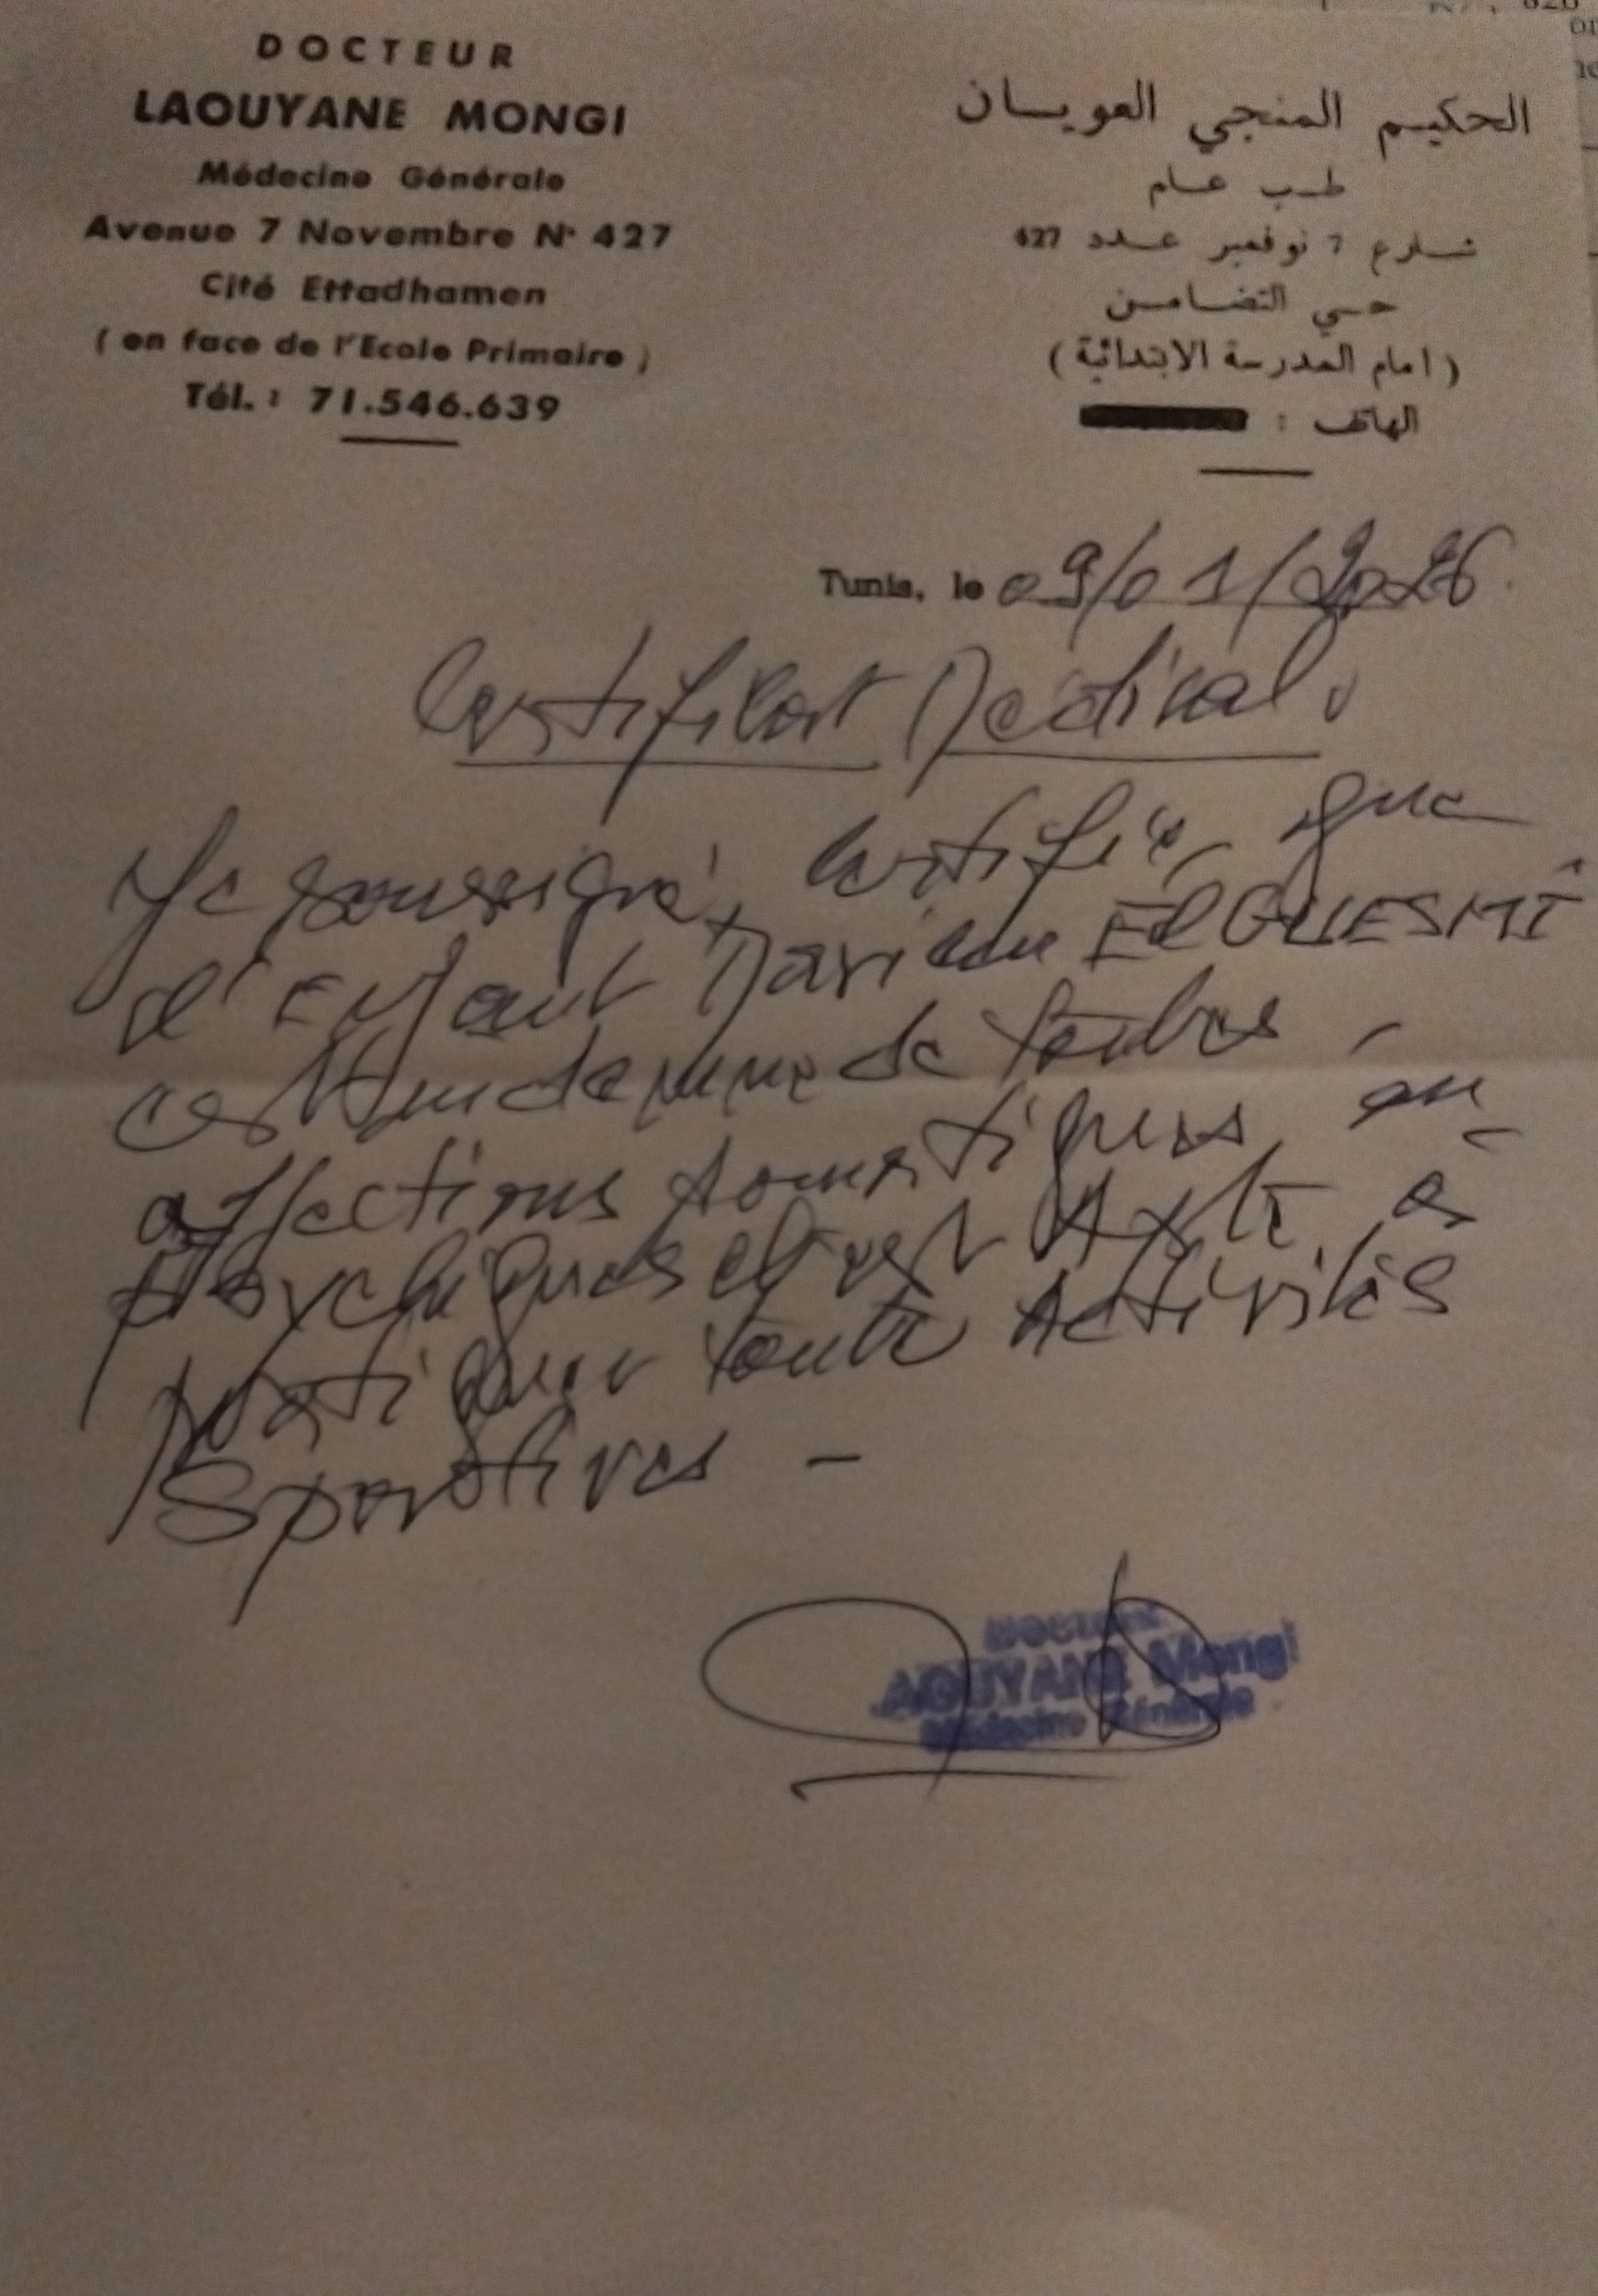 DOCTEUR
LAOUYANE MONGI
Médecine Générale
Avenue 7 Novembre N° 427
Cité Ettadhamen
( en face de l'Ecole Primaire )
Tél. : 71.546.639
الحكيم المنجي العويسان
طب عام
شارع 7 نوفمبر عدد 427
حي التضامن
( امام المدرسة الابتدائية )
الهاتف :
Tunis, le 09/01/2026
Certificat Médical
Je soussigné, certifie que
l'Enfant Mariem ELGUESMI
est indemne de toutes
affections somatiques ou
psychiques et est Apte à
pratiquer toute Activités
Sportives -
Docteur
LAOUYANE Mongi
Médecine Générale